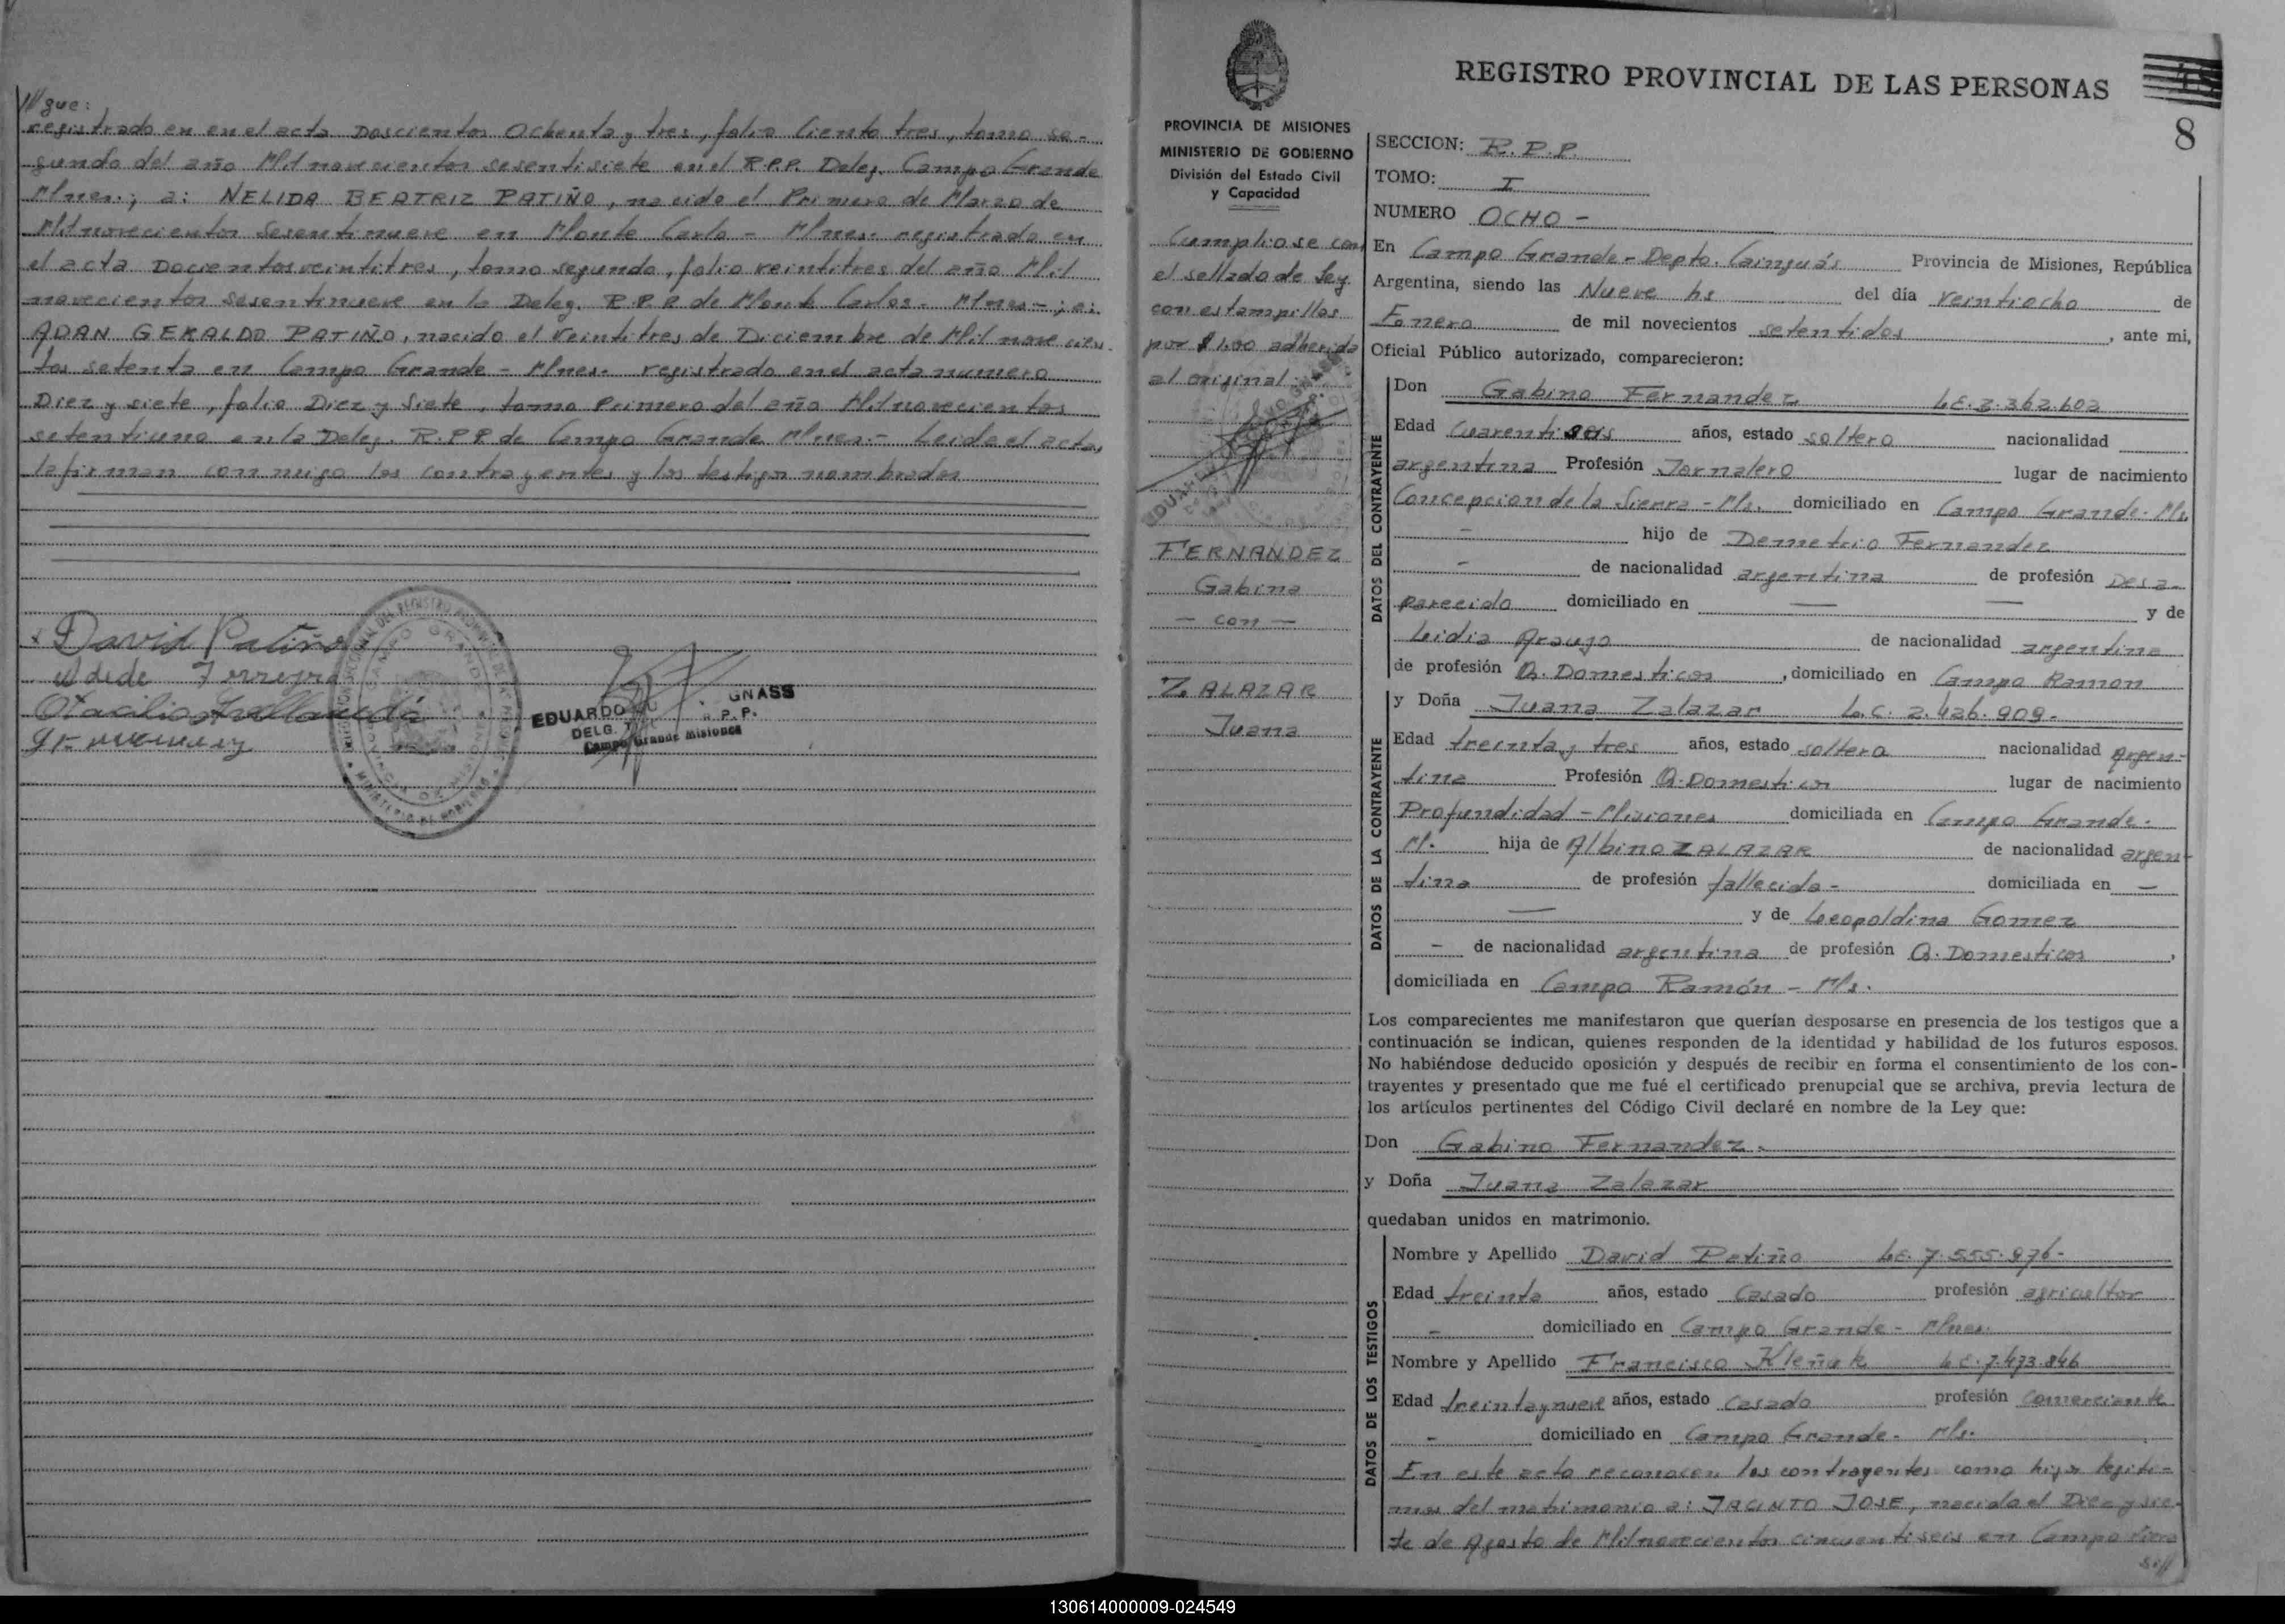 ///gue:
registrado en en el acta Doscientos Ochenta y tres, folio Ciento tres, tomo se-
gundo del año Mil novecientos sesentisiete en el R.P.P. Deleg. Campo Grande
Mnes.; a: NELIDA BEATRIZ PATIÑO, nacido el Primero de Marzo de
Mil novecientos Sesentinueve en Monte Carlo - Mnes. registrado en
el acta Docientos veintitres, tomo segundo, folio veintitres del año Mil
novecientos sesentinueve en la Deleg. R.P.P. de Monte Carlos - Mnes -; a:
ADAN GERALDO PATIÑO, nacido el Veintitres de Diciembre de Mil novecien-
tos setenta en Campo Grande - Mnes. registrado en el acta numero
Diez y siete, folio Diez y Siete, tomo Primero del año Mil novecientos
setentiuno en la Deleg. R.P.P. de Campo Grande Mnes.- Leida el acta,
la firman conmigo los contrayentes y los testigos nombrados
David Patiño
EDUARDO GNASS
DELG. R.P.P.
Campo Grande Misiones
REGISTRO PROVINCIAL DE LAS PERSONAS
8
PROVINCIA DE MISIONES
MINISTERIO DE GOBIERNO
División del Estado Civil
y Capacidad
Cumpliose con
el sellado de Ley
con estampillas
por $ 1,00 adherida
al original
FERNANDEZ
Gabino
- con -
ZALAZAR
Juana
SECCION: R.P.P.
TOMO: I
NUMERO OCHO -
En Campo Grande - Depto. Cainguás Provincia de Misiones, República
Argentina, siendo las Nueve hs del día veintiocho de
Enero de mil novecientos setentidos, ante mi,
Oficial Público autorizado, comparecieron:
DATOS DEL CONTRAYENTE
Don Gabino Fernandez L.E. 2.362.602
Edad Cuarentiseis años, estado soltero nacionalidad
argentina Profesión Jornalero lugar de nacimiento
Concepcion de la Sierra - Ms. domiciliado en Campo Grande - Ms.
- hijo de Demetrio Fernandez
- de nacionalidad argentina de profesión Desa-
parecido domiciliado en — — y de
Leidia Araujo de nacionalidad argentina
de profesión Q. Domesticos, domiciliado en Campo Ramon
DATOS DE LA CONTRAYENTE
y Doña Juana Zalazar L.C. 2.426.909.
Edad treinta y tres años, estado soltera nacionalidad Argen-
tina Profesión Q. Domestico lugar de nacimiento
Profundidad - Misiones domiciliada en Campo Grande.
M. hija de Albino ZALAZAR de nacionalidad argen-
tina de profesión fallecido - domiciliada en —
— y de Leopoldina Gomez
- de nacionalidad argentina de profesión Q. Domesticos,
domiciliada en Campo Ramón - Ms.
Los comparecientes me manifestaron que querían desposarse en presencia de los testigos que a
continuación se indican, quienes responden de la identidad y habilidad de los futuros esposos.
No habiéndose deducido oposición y después de recibir en forma el consentimiento de los con-
trayentes y presentado que me fué el certificado prenupcial que se archiva, previa lectura de
los artículos pertinentes del Código Civil declaré en nombre de la Ley que:
Don Gabino Fernandez.
y Doña Juana Zalazar
quedaban unidos en matrimonio.
DATOS DE LOS TESTIGOS
Nombre y Apellido David Patiño L.E. 7.555.976-
Edad treinta años, estado Casado profesión agricultor
- domiciliado en Campo Grande - Mnes.
Nombre y Apellido Francisco Kleñuk L.E. 7.473.846
Edad treinta y nueve años, estado Casado profesión comerciante
- domiciliado en Campo Grande - Ms.
En este acto reconocen los contrayentes como hijos legiti-
mos del matrimonio a: JACINTO JOSE, nacido el Diez y sie-
te de Agosto de Mil novecientos cincuentiseis en Campo
130614000009-024549